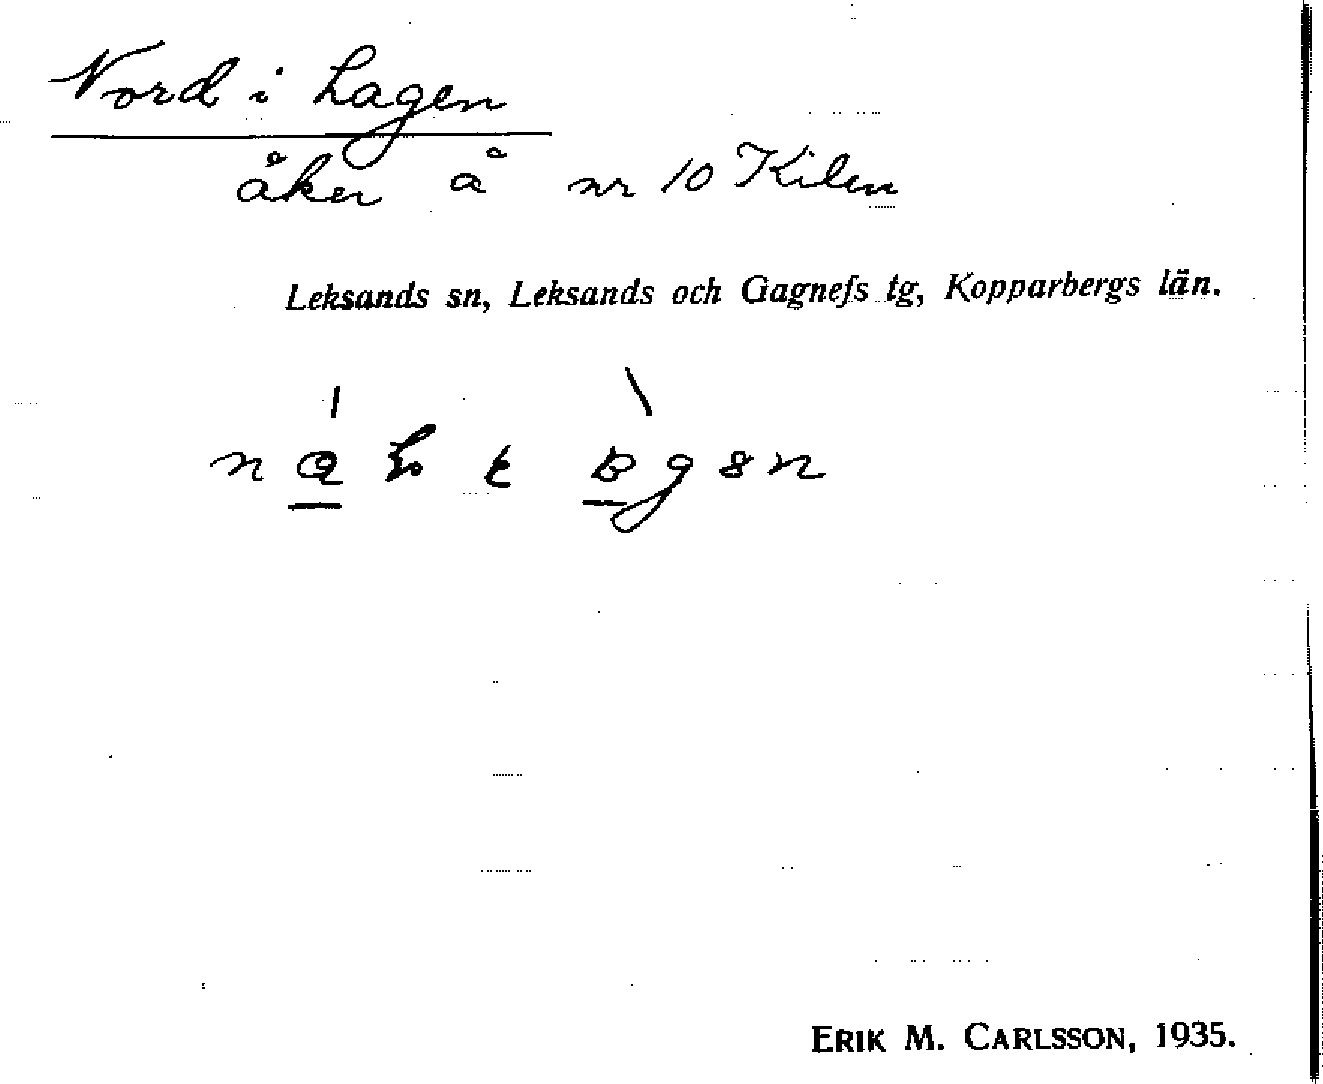 Nord i Lagen
åker å nr 10 Kilen
Leksands sn, Leksands och Gagnefs tg, Kopparbergs län.
ERIK M. CARLSSON, 1935.